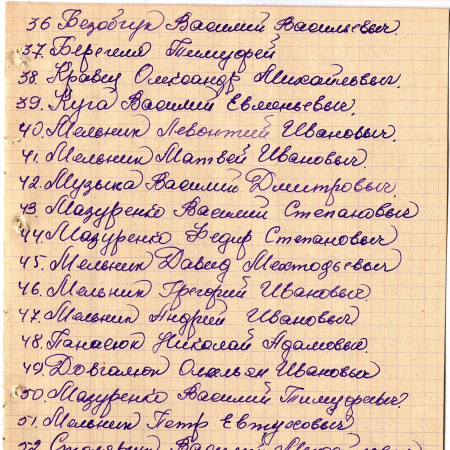 36 Безобчук Василий Васильевич.
37. Берегеля Тимуфей
38. Кравец Олександр Михайловыч.
39. Куга Василий Евменьевыч.
40. Мельник Левонтий Ивановыч.
41. Мельник Матвей Ивановыч
42. Музыка Василий Дмитровыч
43. Мазуренко Василий Степановыч
44. Мазуренко Федир Степановыч
45. Мельник Давид Мехтодьевыч
46. Мельник Григорий Ивановыч
47. Мельник Андрий Ивановыч
48. Панасюк Николай Адамовыч.
49. Довгалюк Ивановыч
50. Мазуренко Василий Тимуфеевыч.
51. Мельник Петр Евтуховыч
52. Василий